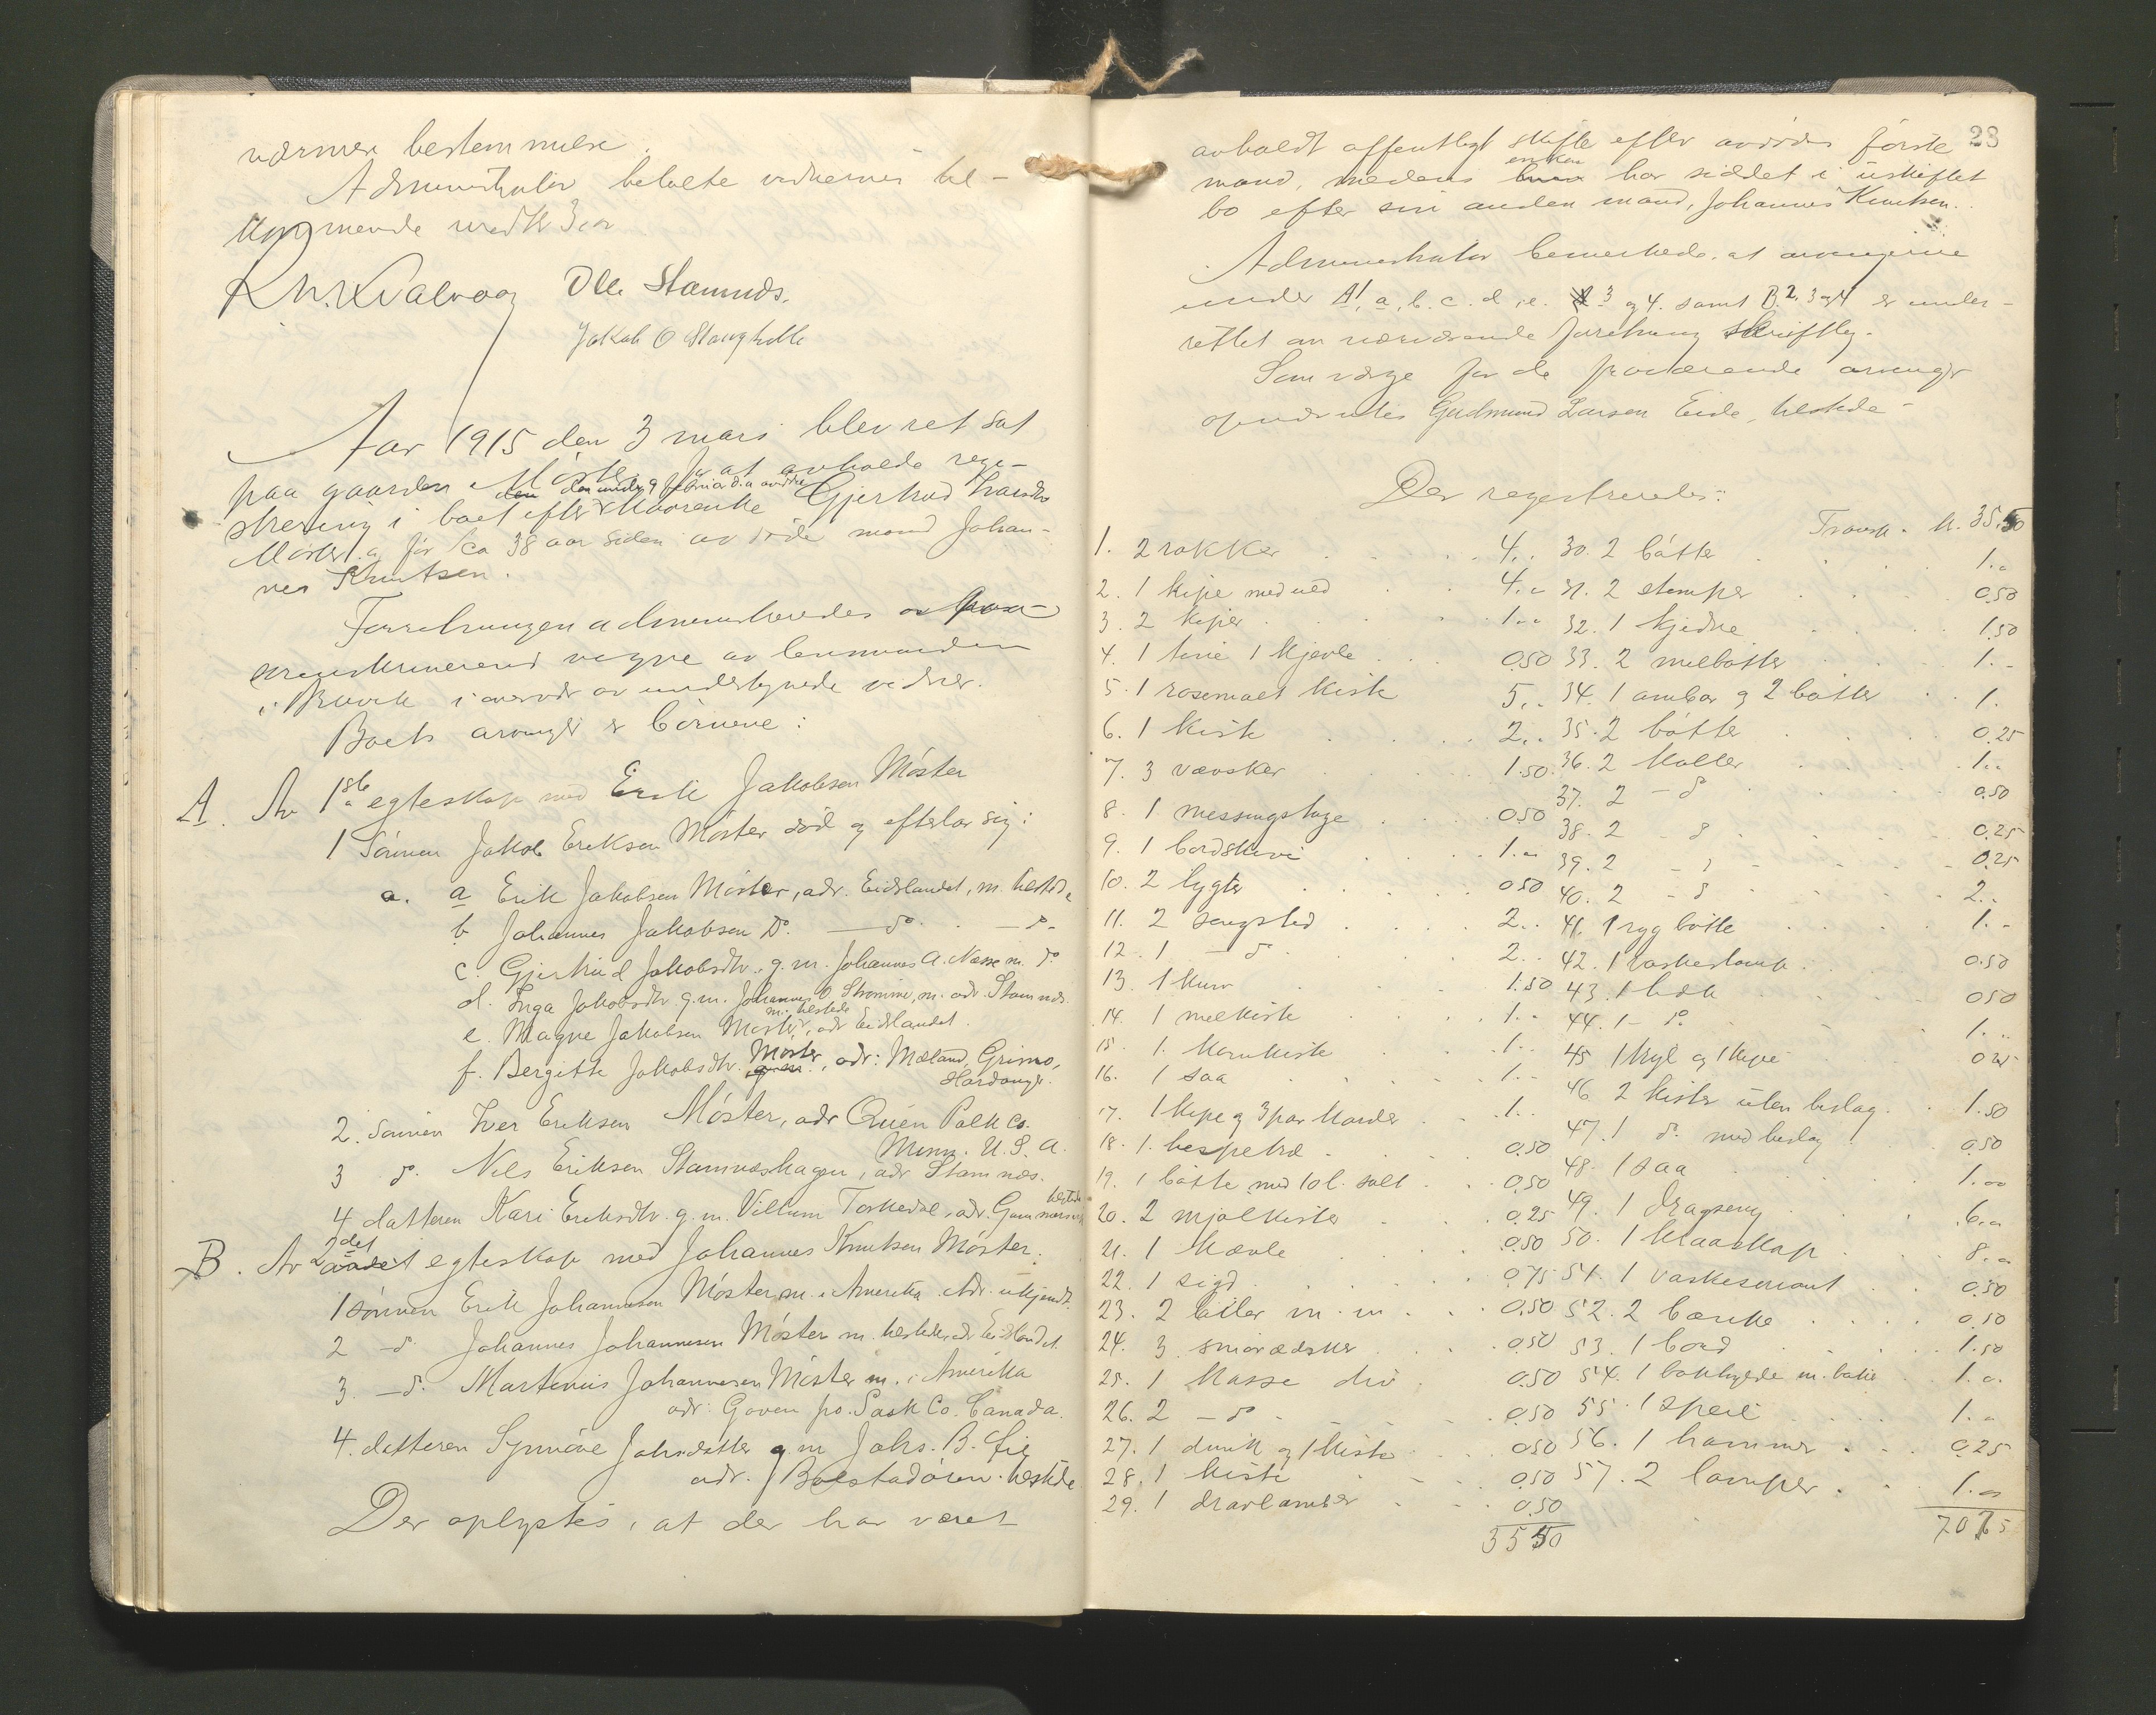 nærmere bestemmelse.
Administrator betalte vidnernes til-
kommende med kr 3,00
Ole Stamnes.
Jakob O
Aar 1915 den 3 mars blev ret sat
paa gaarden Møster for at avholde regi-
strering i boet efter den 9 februar d.a. avdøde Gjertrud Larsdtr
Møster og før ca 38 aar siden avdøde mand Johan-
nes Knutsen.
Forretningen administreredes
vegne av lensmanden
i Bruvik i overvær av undertegnede vidner.
Boets arvinger er børnene:
A. Av 1ste egteskap med Erik Jakobsen Møster
1 Sønnen Jakob Eriksen Møster død og efterlar sig:
a. a Erik Jakobsen Møster, adr. Eidslandet, m. tilstede
b Johannes Jakobsen Do. — do. — do.
c. Gjertrud Jakobsdtr. g.m. Johannes A. Næsse m. do
d. Inga Jakobsdtr. g.m. Johannes O Strømme, m. adr. Stamnes.
e. Magne Jakobsen Møster, m. tilstede adr Eidslandet.
f. Bergitte Jakobsdtr. Møster, adr: Mæland, Grimo,
Hardanger.
2. Sønnen Iver Eriksen Møster, adr Quen Polk Co.
Minn. U.S.A.
3 do. Nils Eriksen Stamneshagen, adr Stamnes.
4. datteren Kari Eriksdtr. g.m. Villum Toskedal, adr. tilstede
B. Av 2det egteskap med Johannes Knutsen Møster.
1 sønnen Erik Johannesen Møster, m. i Amerika. Adr. ukjendt.
2 - d. Johannes Johannesen Møster m. tilstede, adr Eidslandet.
3. - d. Martinius Johannesen Møster m. i Amerika
adr: Goven po. Sask Co. Canada.
4. datteren Synnøve Johsdatter g m Johs. B. Lie
adr. Bolstadøren. tilstede
Der oplystes, at der har været
23
avholdt offentligt skifte efter avdødes første
mand, medens enken har siddet i uskiftet
bo efter sin anden mand, Johannes Knutsen.
Administrator bemerkede, at arvingerne
under A1, a, b. c. d, e. 3 og 4. samt B. 2, 3 og 4 er under-
rettet om nærværende forretning skriftlig.
Som verge for de fraværende arvinger
opnævntes Gudmund Larsen Eide, tilstede-
Der registreredes:
1. 2 rokker 4..
2. 1 kipe med uld 4..
3. 2 kiper 1..
4. 1 tine 1 kjevle 0.50
5. 1 rosemalt kiste 5..
6. 1 kiste 2..
7. 3 vævsker 1.50
8. 1 messingstage 0.50
9. 1 bordskive 1..
10. 2 lygter 0.50
11. 2 sengsted 2..
12. 1 - do 2..
13. 1 kurv 1.50
14. 1 melkiste 1..
15. 1. kornkiste 1..
16. 1 saa 1..
17. 1 kipe og 3 par karder 1..
18. 1. hespetræ 0.50
19. 1 bøtte med 10 l. salt 0.50
20. 2 mjølkister 0.25
21. 1 kævle 0.50
22. 1 sigd 0.75
23. 2 biler m.m 0.50
24. 3 smøræsker 0.50
25. 1 kasse div 0.50
26. 2 - do 0.50
27. 1 dunk og 1 kiste 0.50
28. 1 kiste 0.50
29. 1 dravlambar 0.50
3550
Transp. kr. 35.50
30. 2 bøtter 1..
31. 2 stamper 0.50
32. 1 kjedke 1.50
33. 2 melbøtter 1.-
34. 1 ambar og 2 bøtter 1.
35. 2 bøtter 0.25
36. 2 koller 1..
37. 2 - do 0.50
38. 2 - do 0.25
39. 2 - do 0.25
40. 2 - do 2..
41. 1 rygbøtte 1.-
42. 1 vaskestamp 0.50
43. 1 0.50
44. 1 - do 1..
45 1 tryl og 1 kipe 0.25
46 2 kister uten beslag. 1.50
47. 1 do. med beslag 0.50
48. 1 saa 1.00
49. 1 dragseng 6..
50. 1 klæskap 8..
51. 1 vaskeservant 0.50
52. 2 bænke 0.50
53. 1 bord 1.50
54. 1 bokhylde m. bøker 1..
55. 1 speil 1..
56. 1 hammer 0.25
57. 2 lamper 1.00
7075